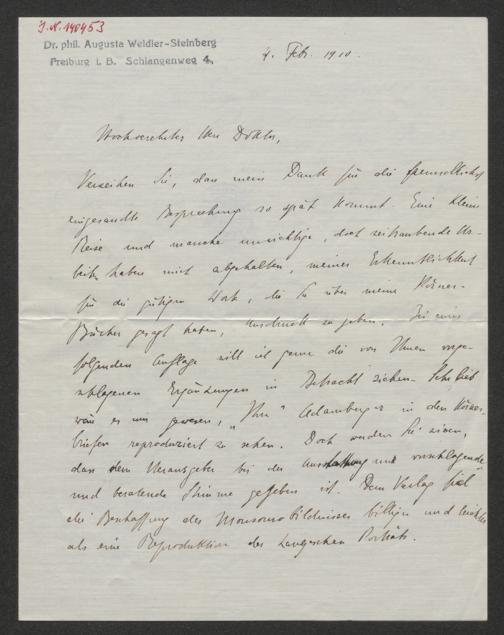 J.N. 140453
Dr. phil. Augusta Weldler-Steinberg
Freiburg i. B. Schlangenweg 4.
4. Feb. 1910.
Hochverehrter Herr Doktor,
Verzeihen Sie, dass mein Dank für die freundlichst
eingesandte Besprechung so spät kommt. Eine kleine
Reise und manche unwichtige, doch zeitraubende Ar-
beit haben mich abgehalten, meiner Erkenntlichkeit
für die gütigen Worte, die Sie über meine Körner-
Bücher gesagt haben, Ausdruck zu geben. Bei einer
folgenden Auflage will ich gerne die von Ihnen vorge-
schlagenen Ergänzungen in Betracht ziehen. Sehr lieb
wäre es mir gewesen, "Ihre" Adamberger in den Körner-
briefen reproduziert zu sehen. Doch werden Sie wissen,
dass dem Herausgeber bei der Ausstattung nur vorschlagende
und beratende Stimme gegeben ist. Dem Verlag fiel
die Beschaffung des Monsorno Bildnisses billiger und leichter
als eine Reproduktion des Langeschen Porträts.